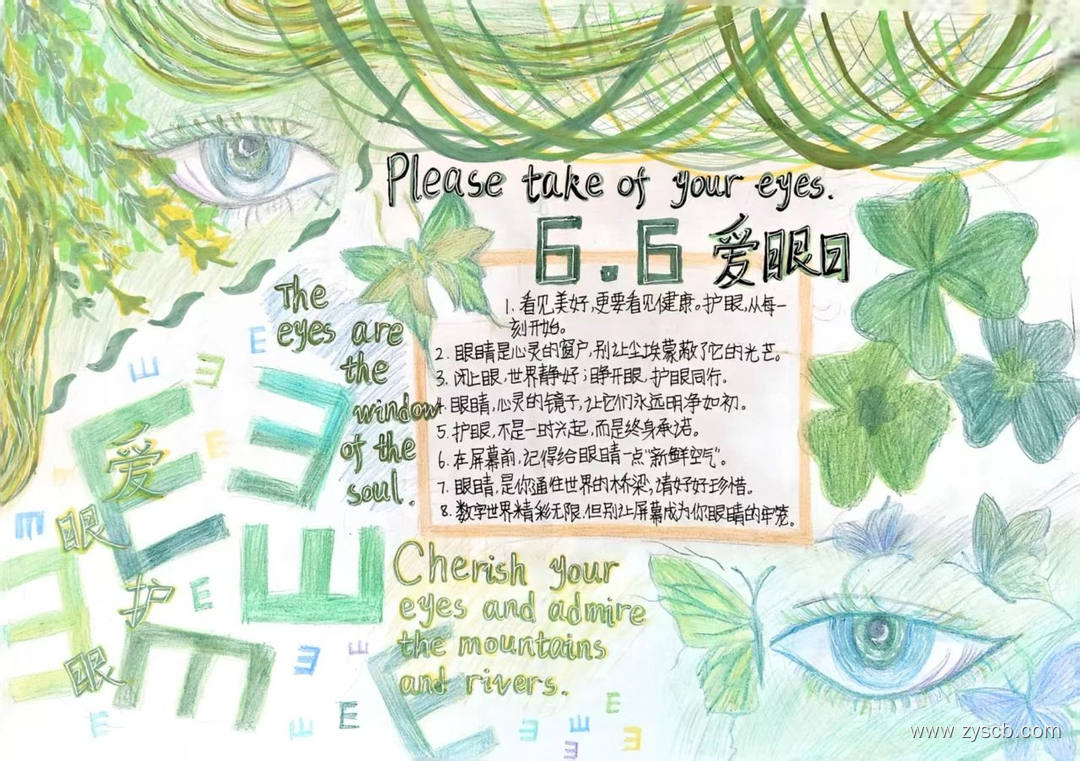 Please take of your eyes.
6.6 爱眼日
1. 看见美好,更要看见健康。护眼,从每一
刻开始。
2. 眼睛是心灵的窗户,别让尘埃蒙蔽了它的光芒。
3. 闭上眼,世界静好;睁开眼,护眼同行。
4. 眼睛,心灵的镜子,让它们永远明净如初。
5. 护眼,不是一时兴起,而是终身承诺。
6. 在屏幕前,记得给眼睛一点“新鲜空气”。
7. 眼睛,是你通往世界的桥梁,请好好珍惜。
8. 数字世界精彩无限,但别让屏幕成为你眼睛的牢笼。
The
eyes are
the
window
of the
soul.
爱
眼
护
眼
Cherish your
eyes and admire
the mountains
and rivers.
www.zyscb.com